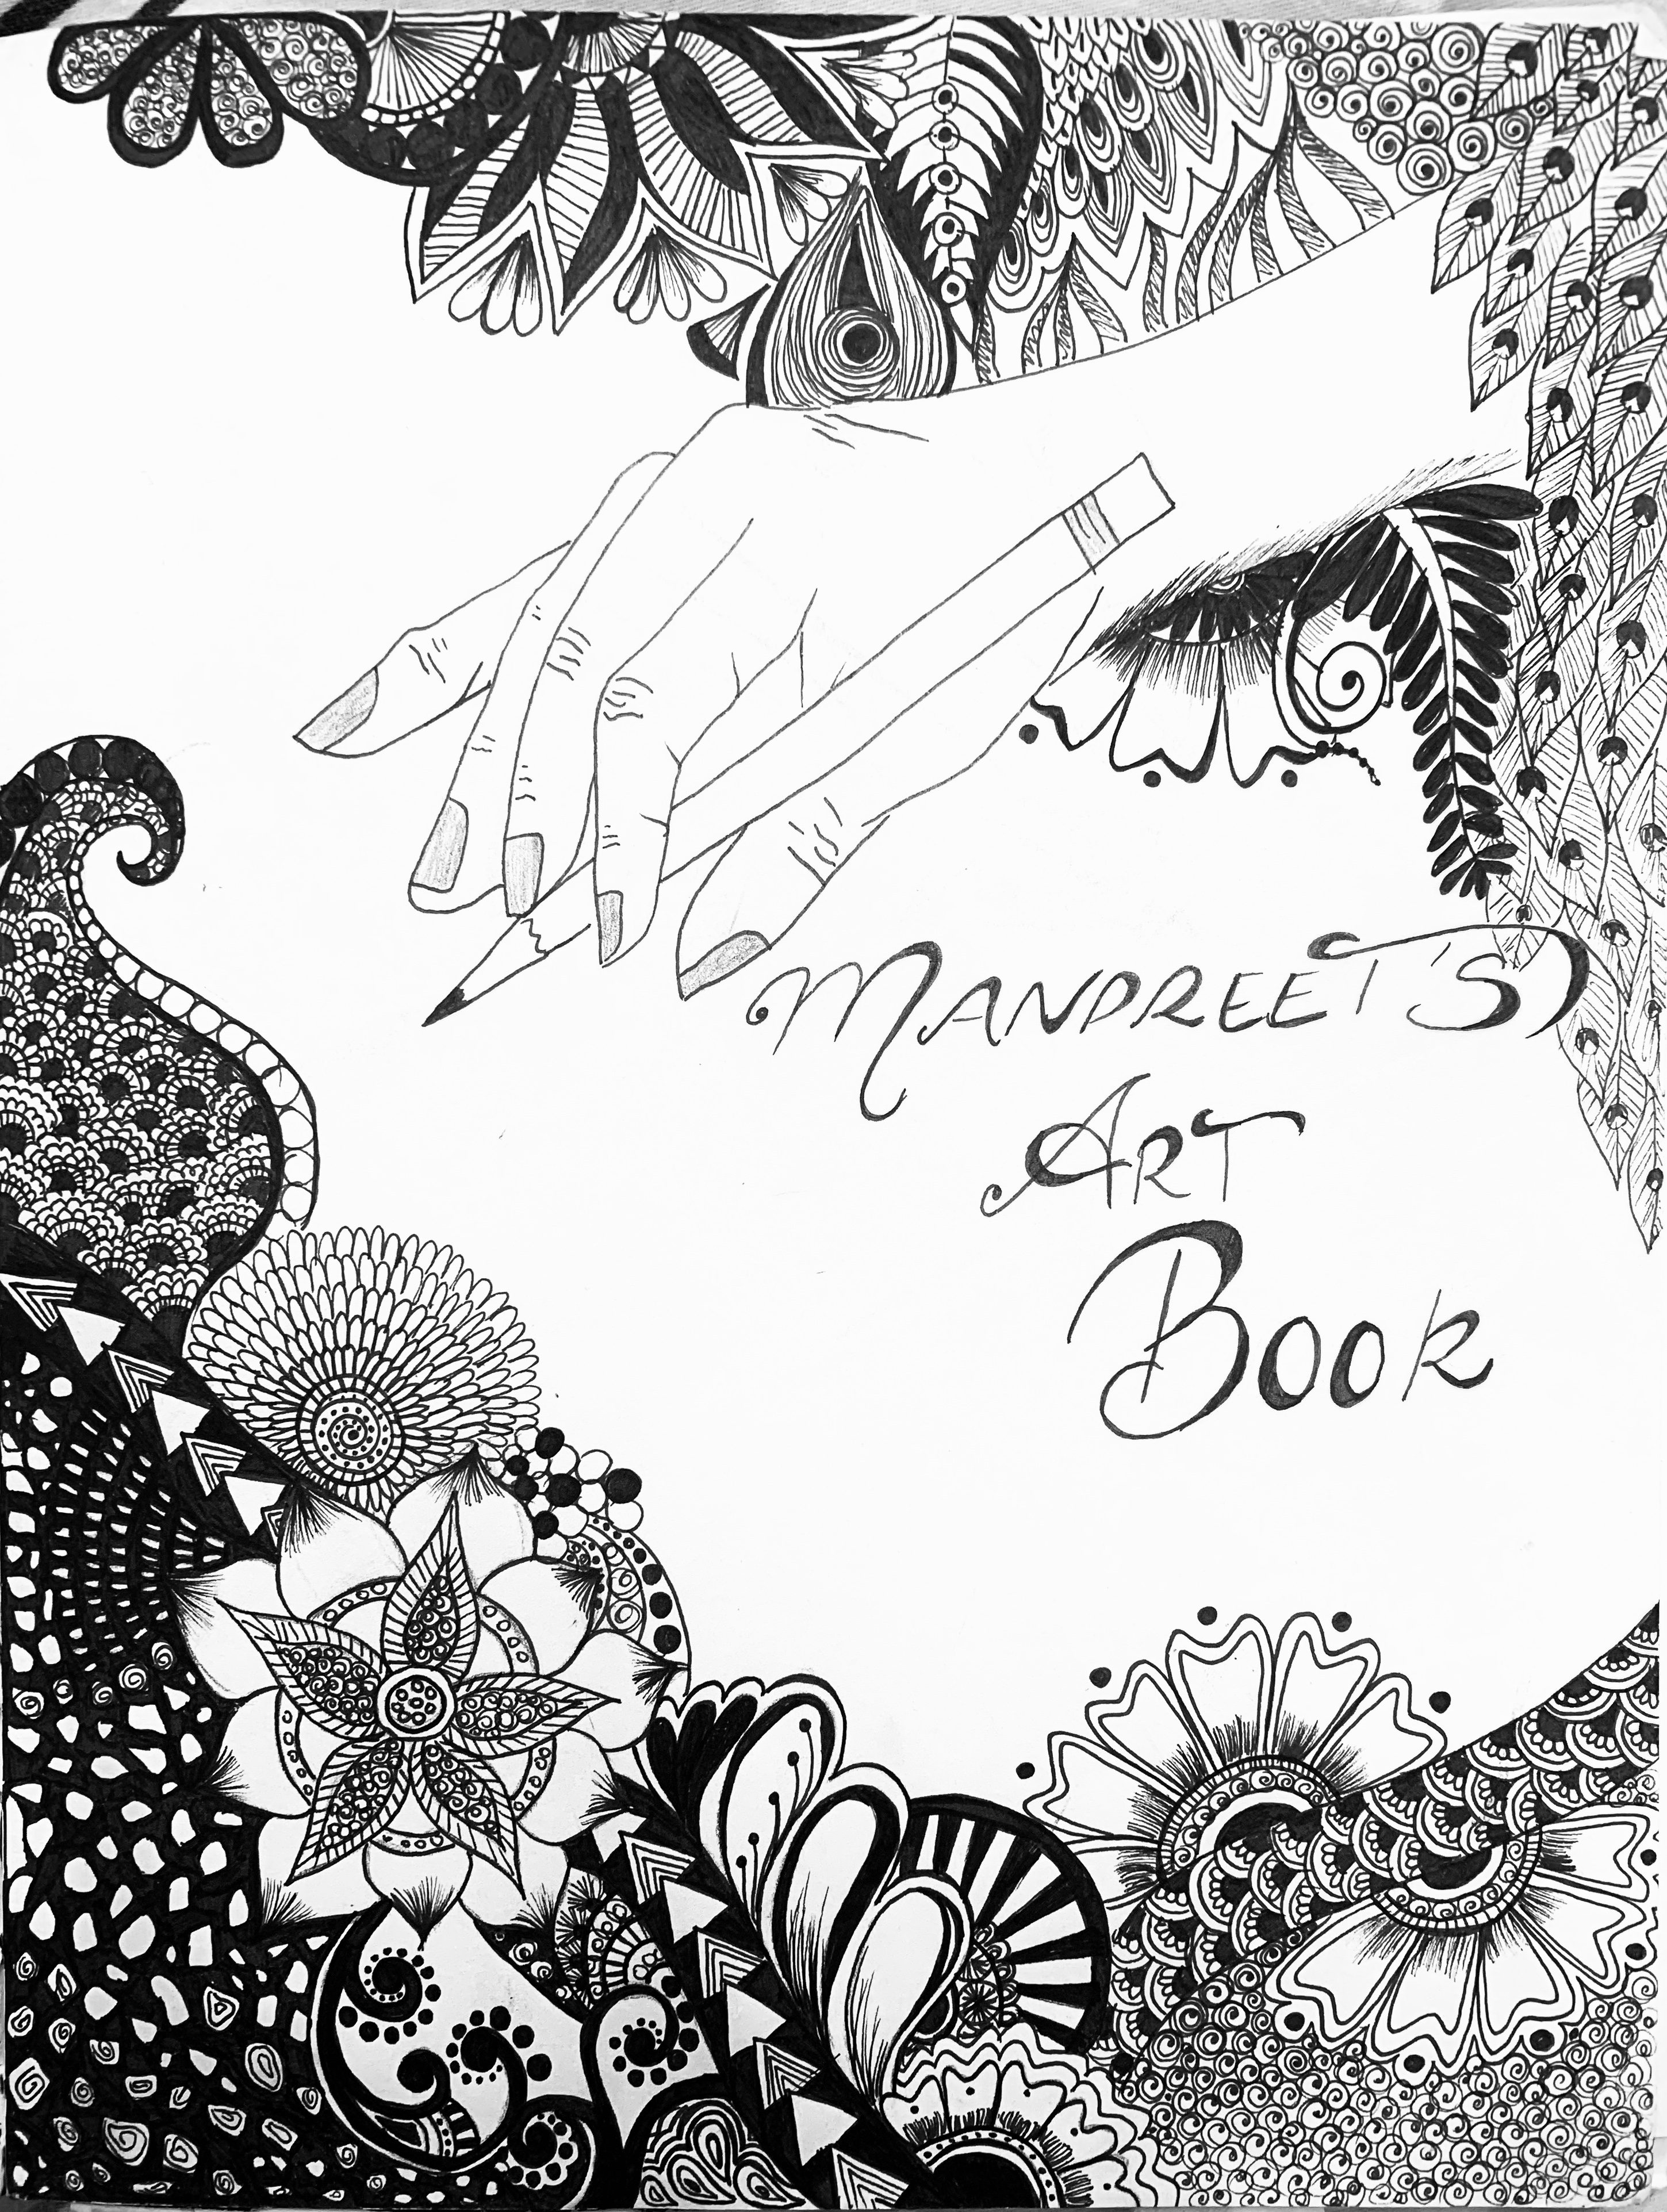 MANPREET'S
ART
BOOK